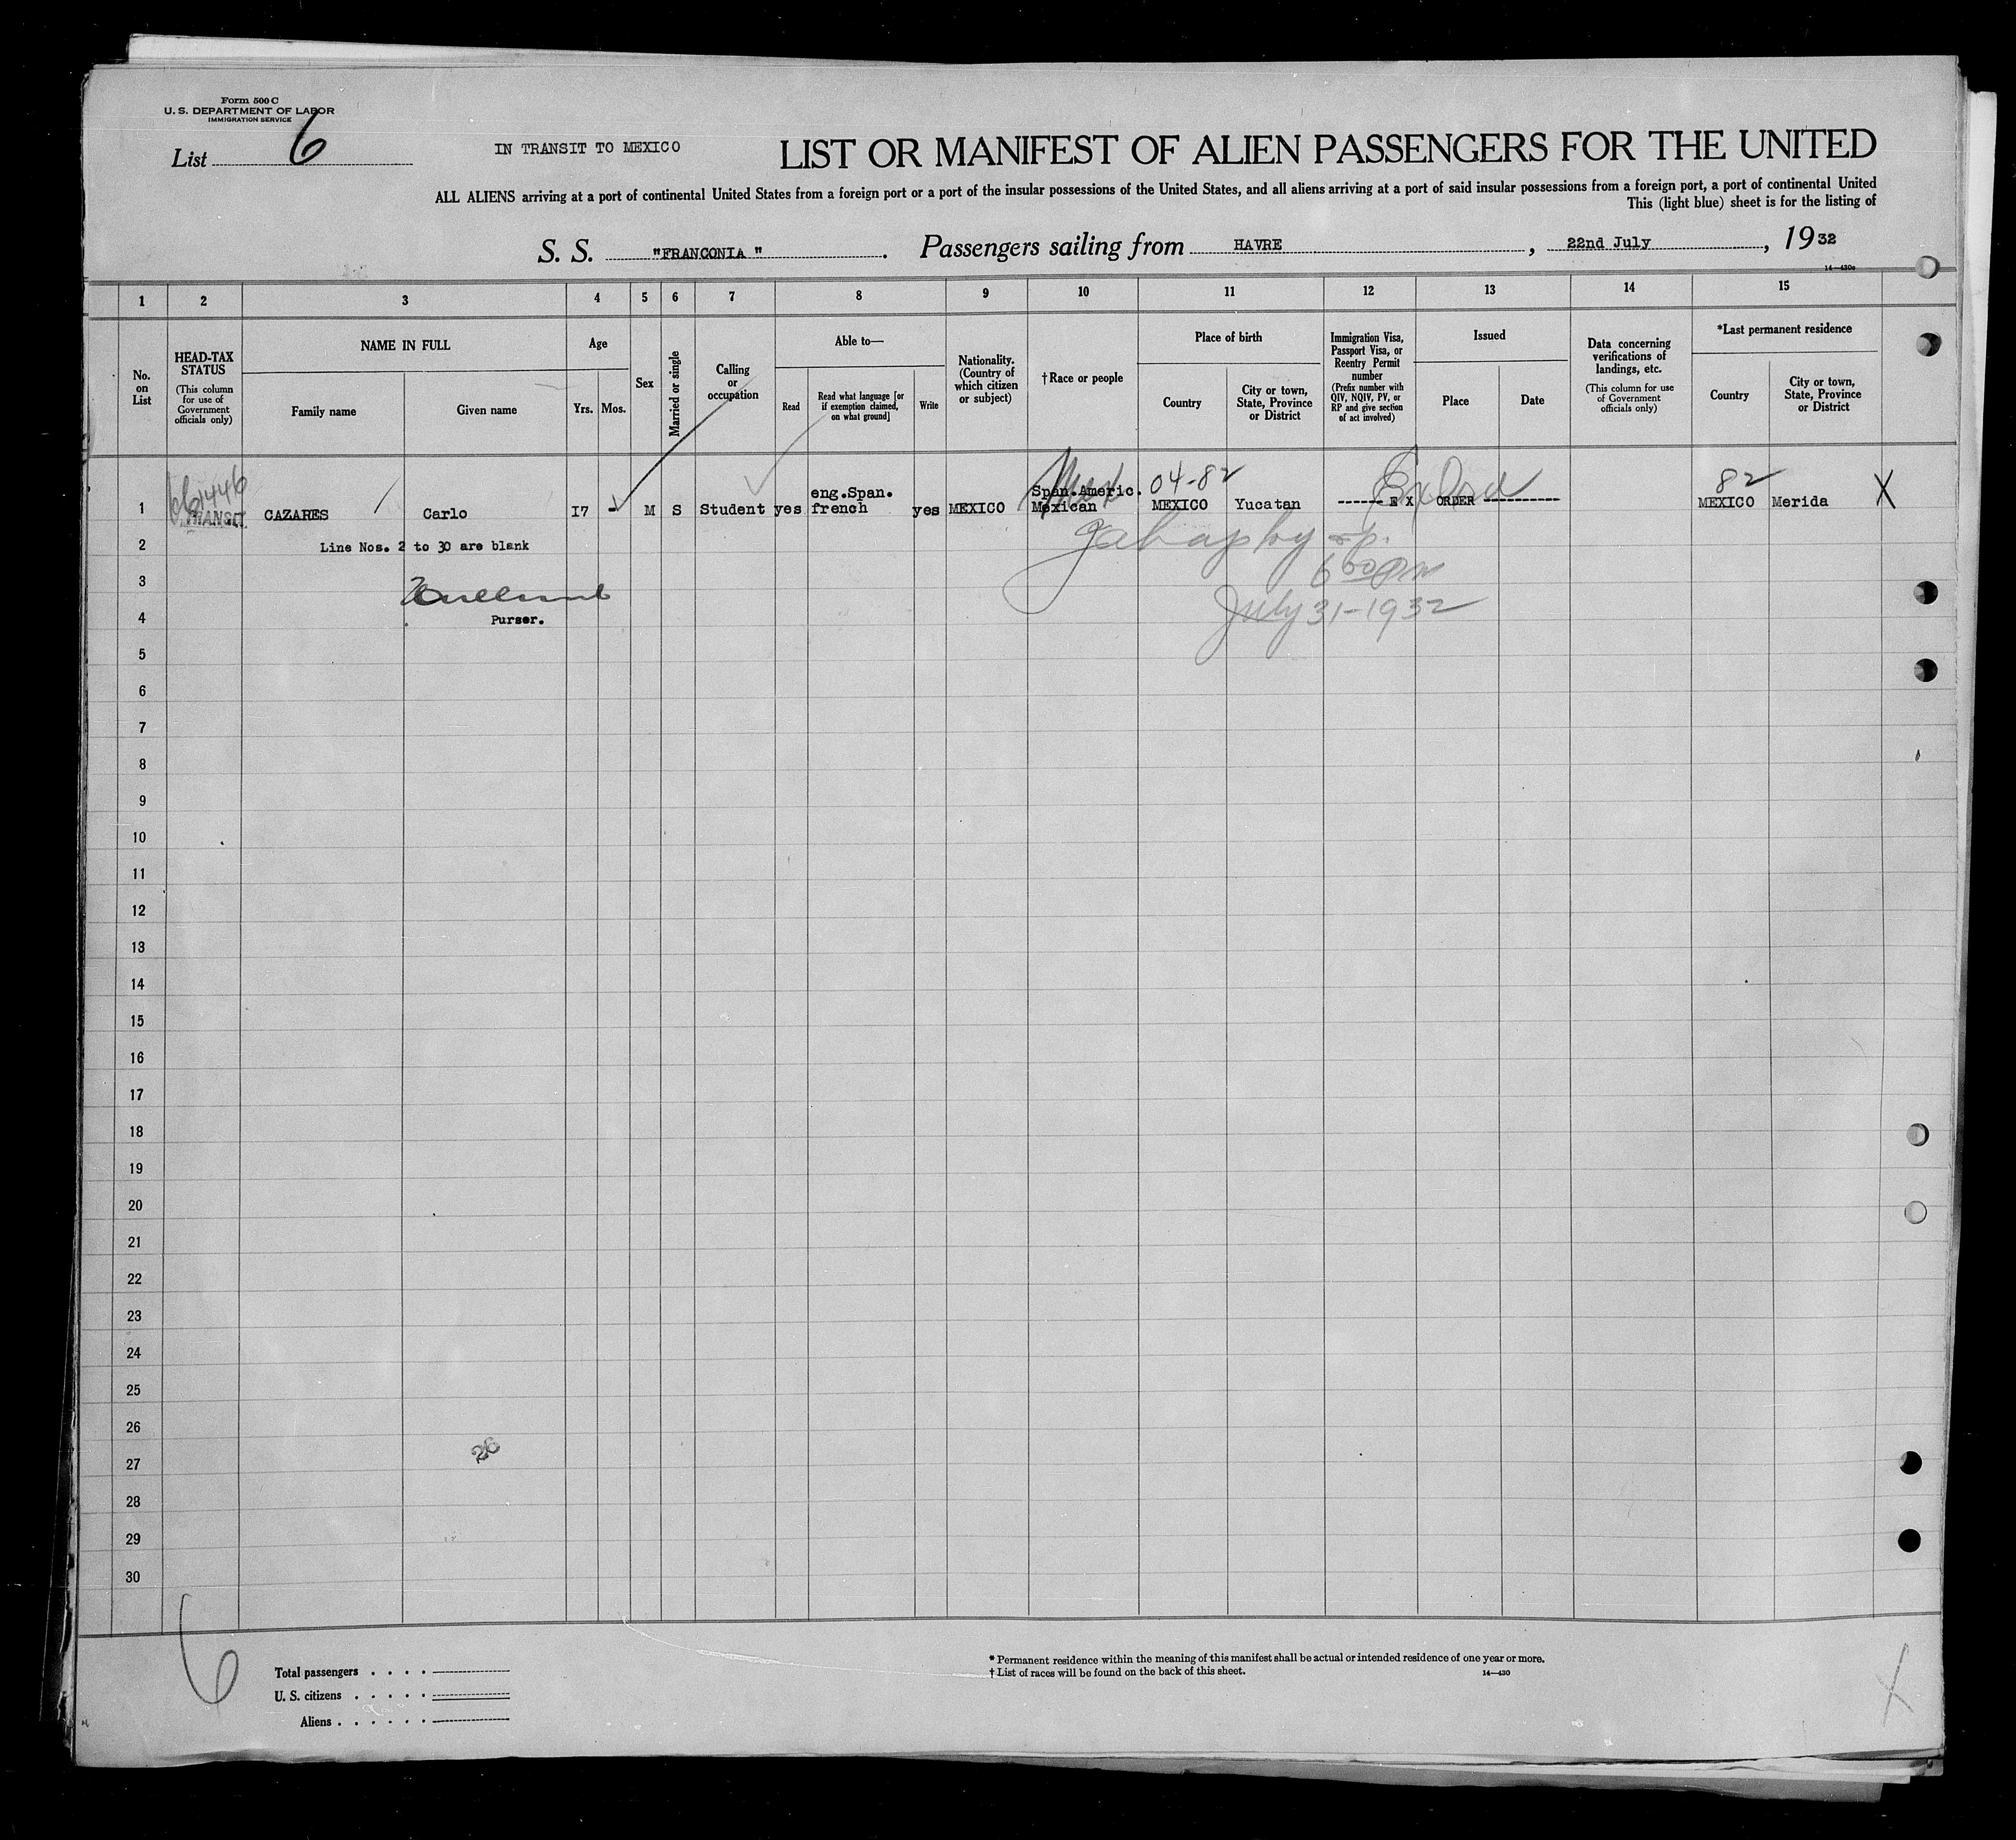 Form 500 C
U. S. DEPARTMENT OF LABOR
IMMIGRATION SERVICE
List 6
IN TRANSIT TO MEXICO
LIST OR MANIFEST OF ALIEN PASSENGERS FOR THE UNITED
ALL ALIENS arriving at a port of continental United States from a foreign port or a port of the insular possessions of the United States, and all aliens arriving at a port of said insular possessions from a foreign port, a port of continental United
This (light blue) sheet is for the listing of
S. S. "FRANCONIA". Passengers sailing from HAVRE, 22nd July, 1932
14—430a
1 2 3 4 5 6 7 8 9 10 11 12 13 14 15
No. on List
HEAD-TAX STATUS
(This column for use of Government officials only)
NAME IN FULL
Family name
Given name
Age
Yrs.
Mos.
Sex
Married or single
Calling or occupation
Able to—
Read
Read what language [or if exemption claimed, on what ground]
Write
Nationality. (Country of which citizen or subject)
†Race or people
Place of birth
Country
City or town, State, Province or District
Immigration Visa, Passport Visa, or Reentry Permit number
(Prefix number with QIV, NQIV, PV, or RP and give section of act involved)
Issued
Place
Date
Data concerning verifications of landings, etc.
(This column for use of Government officials only)
*Last permanent residence
Country
City or town, State, Province or District
Mex 04-82 Ex Ord 82
eng.Span. Span.Americ.
1 TRANSIT CAZARES Carlo I7 - M S Student yes french yes MEXICO Mexican MEXICO Yucatan ------ E X ORDER ---------- MEXICO Merida X
2 Line Nos. 2 to 30 are blank
3 6 00 pm
July 31-1932
4 Purser.
5
6
7
8
9
10
11
12
13
14
15
16
17
18
19
20
21
22
23
24
25
26
26
27
28
29
30
6
Total passengers
U. S. citizens
Aliens
* Permanent residence within the meaning of this manifest shall be actual or intended residence of one year or more.
† List of races will be found on the back of this sheet.
14—430
X